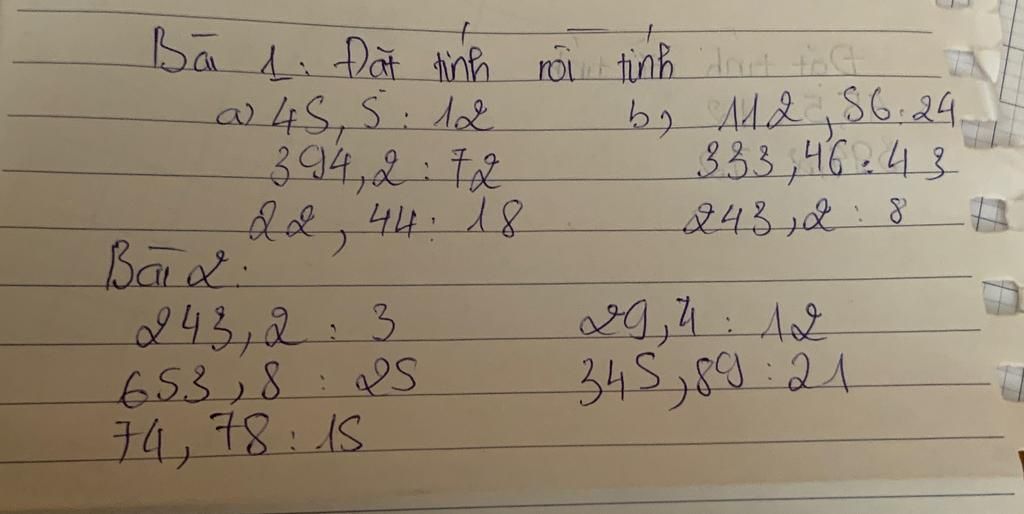 Bài 1: Đặt tính rồi tính
a) 45,5 : 12 b, 112,56:24
394,2 : 72 333,46:43
22,44: 18 243,2 : 8
Bài 2:
243,2 : 3 29,4 : 12
653,8 : 25 345,89:21
74,78:15